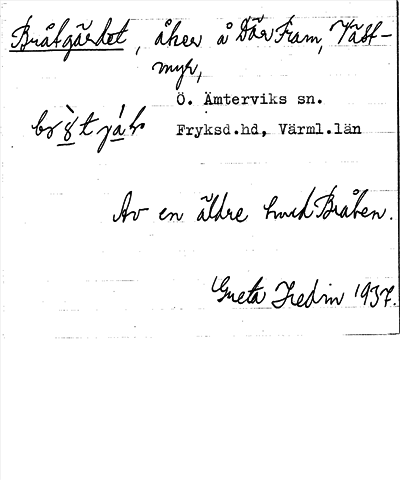 Bråtgärdet, åker å Där Fram, Väst-
myr,
Ö. Ämterviks sn.
Fryksd.hd, Värml.län
Av en äldre hvid Bråten.
Greta Hedin 1937.